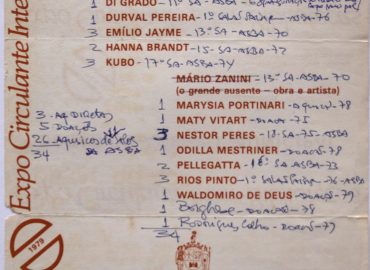 Expo Circulante Inte
1979
1 DI GRADO - 11º SA-ASBA
1 DURVAL PEREIRA - 1º ASBA-76
3 EMÍLIO JAYME - 13º SA-ASBA-70
2 HANNA BRANDT - 15-SA-ASBA-72
3 KUBO - 17º SA-ASBA
MÁRIO ZANINI - 13º SA-ASBA-70
(o grande ausente - obra e artista)
1 MARYSIA PORTINARI - 78
1 MATY VITART - DOAÇÃO-75
3 NESTOR PERES - 18-SA-75-ASBA
1 ODILLA MESTRINER - DOAÇÃO-78
2 PELLEGATTA - 16º SA-ASBA-73
3 RIOS PINTO - 1º 76-ASBA
1 WALDOMIRO DE DEUS - DOAÇÃO-79
1 DOAÇÃO-78
1 Rodrigues Coelho - DOAÇÃO-79
34
3 - Aq Diretas
5 DOAÇÕES
26 - Aquisições de
34 DA ASBA